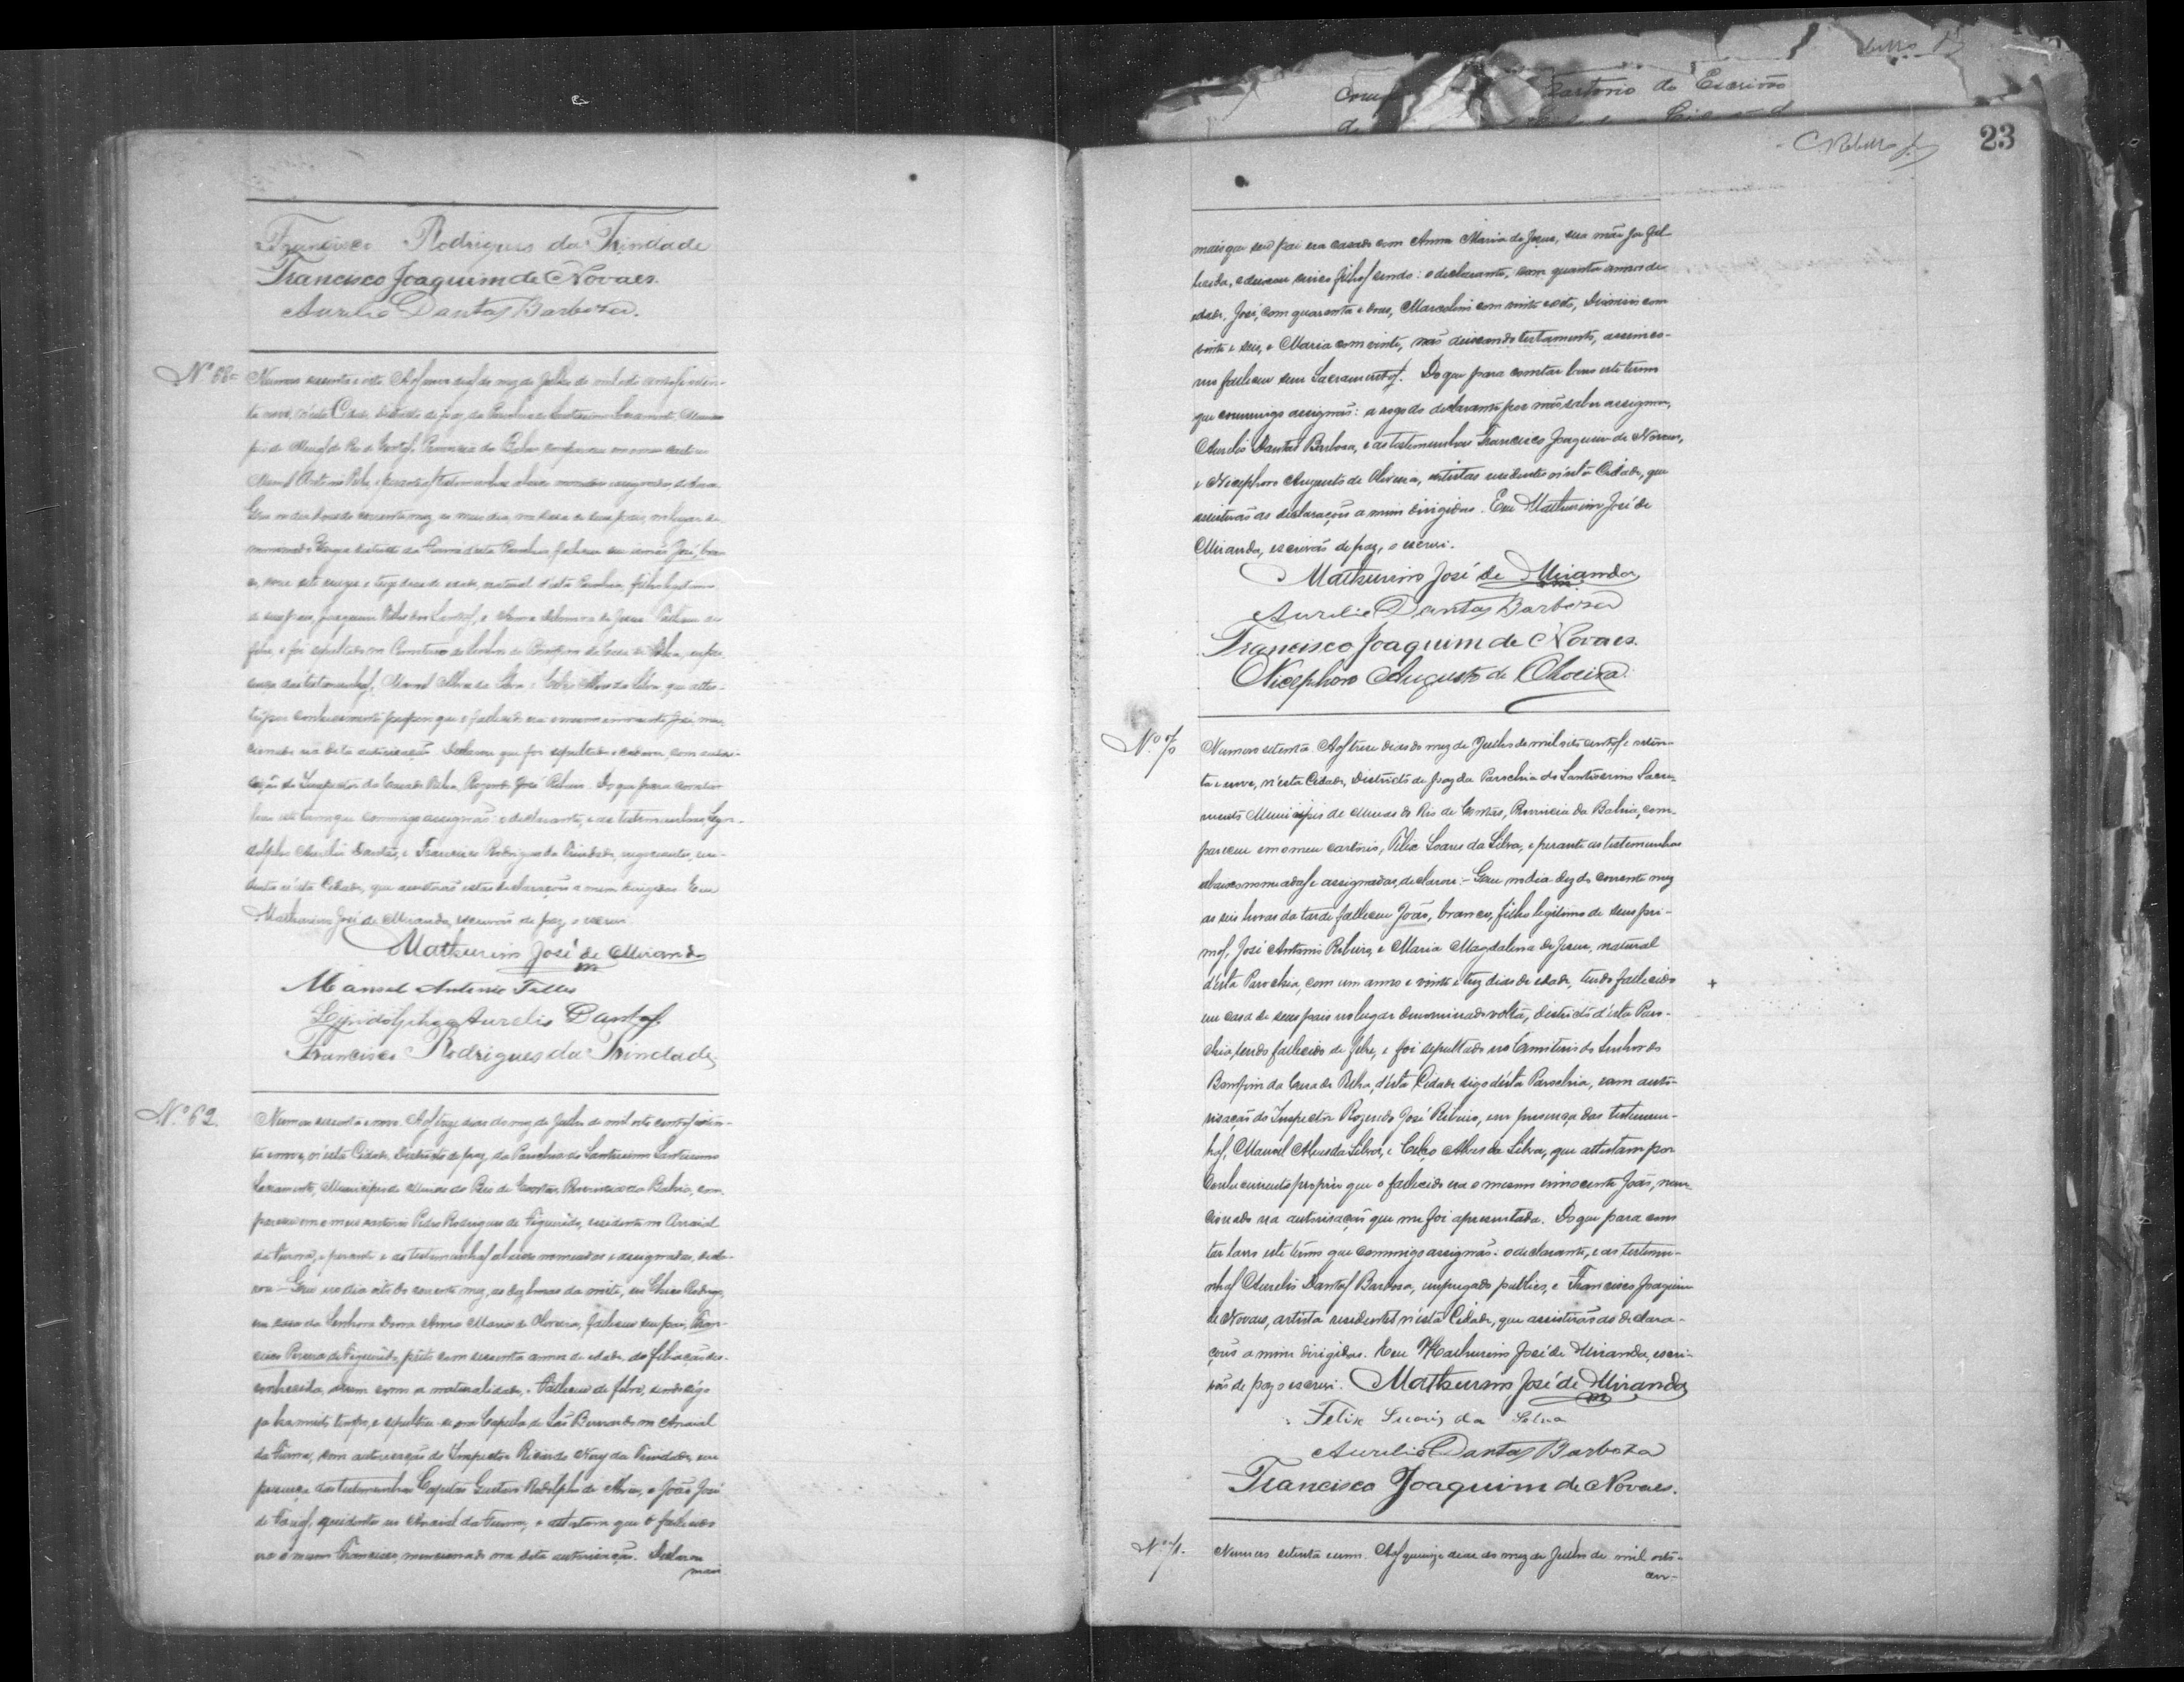 Francisco Rodrigues da Trindade
Francisco Joaquim de Novaes.
Aurelio Dantas Barboza.
Nº 68= Numero sessenta e oito. Aos onze dias do mez de Julho de mil oito centos e seten-
ta e nove, n'esta Cidade, Districto de paz, da Parochia do Santissimo Sacramento, Muni-
pio de Minas do Rio de Contas, Provincia da Bahia compareceu em meu cartorio
Manoel Antonio Telles, e perante as testemunhas abaixo nomeadas e assignadas, declarou
Que no dia do corrente mez ao meio dia, em casa de seus pais, no lugar de
nominado districto da Furna d'esta Parochia falleceu seu irmão José, bran
co, mezes e treze dias de idade, natural d'esta Parochia, filho legitimo
de seus pais, Joaquim Telles dos Santos, e Anna de Jesus. Falleceu de
febre, e foi sepultado no Cemiterio do Senhor do Bomfim da Casa da Telha, em pre-
sença das testemunhas, Manoel Alves da Silva e Celso Alves da Silva, que attes-
tão por conhecimento proprio que o fallecido era o mesmo innocente José, men-
cionado na dita autorisação. Declarou que foi sepultado o cadaver, com autori-
sação do Inspector da Telha, Rozendo José Ribeiro. Do que para constar
lavro este termo que commigo assignão: o declarante, e as testemunhas, Lyn-
dolpho Aurelio Dantas, e Francisco Rodrigues da Trindade, negociantes, resi-
dentes n'esta Cidade, que assistirão estas declarações a mim dirigidas. Eu
Mathurino José de Miranda, escrivão de paz, o escrevi.
Mathurino José de Miranda
Manoel Antonio Telles
Lyndolpho Aurelio Dantas
Francisco Rodrigues da Trindade
Nº 69. Numero sessenta e nove. Aos treze dias do mez de Julho de mil oito centos e seten-
ta e nove, n'esta Cidade, Districto de paz, da Parochia do Santissimo Santissimo
Sacramento, Municipio de Minas do Rio de Contas, Provincia da Bahia, com-
pareceu em o meu cartorio Pedro Rodrigues de Figueiredo, residente no Arraial
da Furna, e perante e as testemunhas abaixo nomeadas e assignadas, decla-
rou:- Que no dia oito do corrente mez, as dez horas da noite,
em casa da Senhora Dona Anna Maria de Oliveira, falleceu seu pai, Fran-
cisco Pereira de Figueiredo, preto com sessenta annos de idade, de filiação des-
conhecida, assim como a naturalidade. Falleceu de febre, sendo digo
ja ha muito tempo, e sepultou-se na Capella de São Bernardo no Arraial
da Furna, com autorisação do Inspector Ricardo Nery da Trindade, em
presença das testemunhas Capitão Gustavo Rodolpho de, e João José
de, residentes no Arraial da Furna, e attestam que o fallecido
era o mesmo Francisco, mencionado na dita autorisação. Declarou
mais
C Rebello
23
mais que seu pai era casado com Anna Maria de Jesus, sua mãe ja fal
lecida, e deixou cinco filhos sendo: o declarante, com quarenta annos de
edade, José, com quarenta e dous, Marcolino com vinte e oito, Dionisio com
vinte e seis, e Maria com vinte, não deixando testamento, assim co-
mo falleceu sem Sacramentos. Do que para constar lavro este termo
que commigo assignão: a rogo do declarante por não saber assignar,
Aurelio Dantas Barboza, e as testemunhas Francisco Joaquim de Novaes,
e Nicephoro Augusto de Oliveira, artistas residentes n'esta Cidade, que
assistirão as declarações a mim dirigidas. Eu Mathurino José de
Miranda, escrivão de paz, o escrevi.
Mathurino José de Miranda
Aurelio Dantas Barboza
Francisco Joaquim de Novaes.
Nicephoro Augusto de Oliveira
Nº 70 Numero setenta. Aos treze dias do mez de Julho de mil oito centos e seten-
ta e nove, n'esta Cidade, Districto de paz da Parochia do Santissimo Sacra-
mento Municipio de Minas do Rio de Contas, Provincia da Bahia, com-
pareceu em o meu cartorio, Felix Soares da Silva, e perante as testemunhas
abaixo nomeadas e assignadas, declarou:- Que no dia dez do corrente mez
as seis horas da tarde falleceu João, branco, filho legitimo de seus pri-
mos, José Antonio Ribeiro, e Maria Magdalena de Jesus, natural
d'esta Parochia, com um anno e vinte e trez dias de idade, tendo fallecido
em casa de seus pais no lugar denominado volta, districto d'esta Paro-
chia, tendo fallecido de febre, e foi sepultado no Cemiterio do Senhor do
Bomfim da Casa da Telha, d'esta Cidade digo d'esta Parochia, com auto-
risação do Inspector Rozendo José Ribeiro, em presença das testemun-
has, Manoel Alves da Silva, e Celço Alves da Silva, que attestam por
Conhecimento proprio que o fallecido era o mesmo innocente João, men-
cionado na autorisação que me foi apresentada. Do que para cons
tar lavro este termo que commigo assignão: o declarante, e as testemu-
nhas Aurelio Dantas Barboza, empregado publico, e Francisco Joaquim
de Novaes, artista residentes n'esta Cidade, que assistirão as declara-
ções a mim dirigidas. Eu Mathurino José de Miranda, escri-
vão de paz o escrevi. Mathurino José de Miranda
Felix Suaris da Silva
Aurelio Dantas Barboza
Francisco Joaquim de Novaes.
Nº 71. Numero setenta e um. Aos quinze dias do mez de Julho de mil oito-
cen-